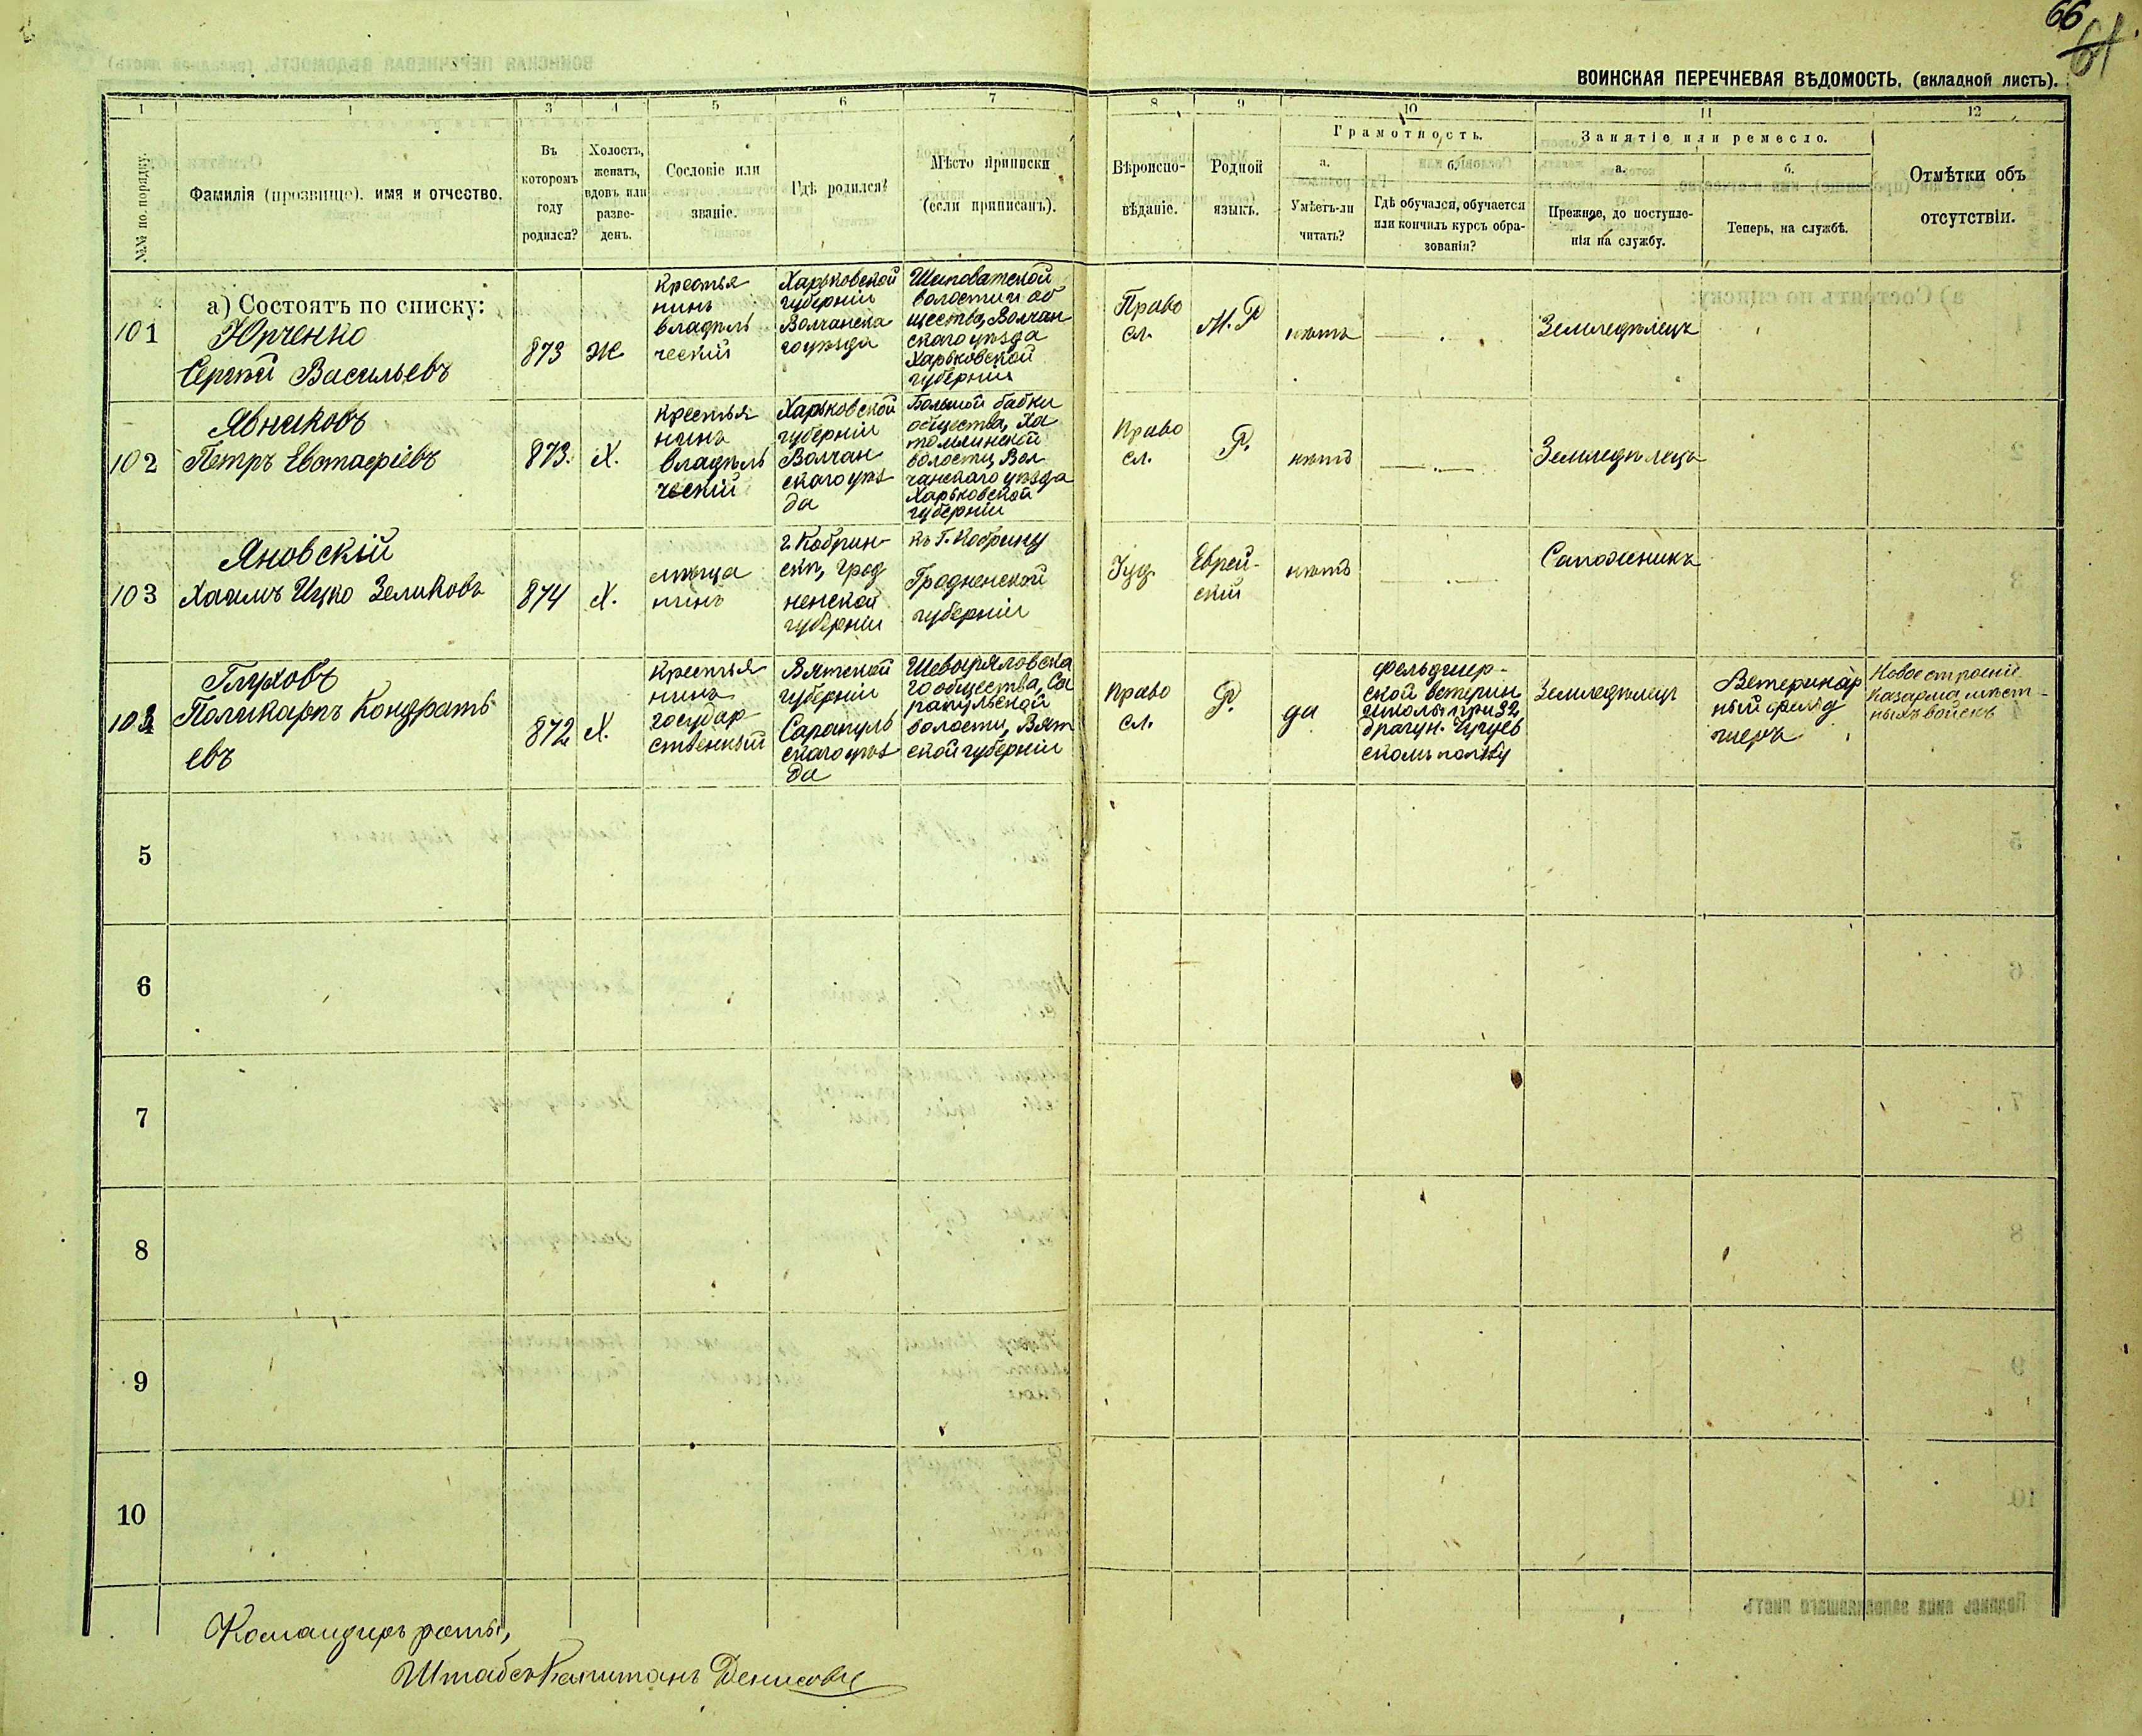 66
61
ВОИНСКАЯ ПЕРЕЧНЕВАЯ ВѢДОМОСТЬ. (вкладной листъ).
1
3
4
5
6
7
8
9
10
11
12
№№ по порядку.
Фамилія (прозвище). имя и отчество.
Въ
которомъ
году
родился?
Холостъ,
женатъ,
вдовъ или
разве-
денъ.
Сословіе или
званіе.
Гдѣ родился?
Мѣсто приписки
(если приписанъ).
Вѣроиспо-
вѣданіе.
Родной
языкъ.
Грамотность.
а.
Умѣетъ-ли
читать?
б.
Гдѣ обучался, обучается
или кончилъ курсъ обра-
зованія?
Занятіе или ремесло.
а.
Прежнее, до поступле-
нія на службу.
б.
Теперь, на службѣ.
Отмѣтки объ
отсутствіи.
а) Состоятъ по списку:
101
Юрченко
Сергѣй Васильевъ
873
Ж
крестья
нинъ
владѣль
ческій
Харьковской
губерніи
Волчанска
го уѣзда
Шиповатской
волости и об
щества, Волчан
скаго уѣзда
Харьковской
губерніи
Право
сл.
М. Р
нѣтъ
Земледѣлецъ
102
Явниковъ
Петръ Евстафіевъ
873.
Х.
крестья
нинъ
владѣль
ческій
Харьковской
губерніи
Волчан
скаго уѣз
да
Большой бабки
общества, Ха
томлинской
волости, Вол
чанскаго уѣзда
Харьковской
губерніи
Право
сл.
Р.
нѣтъ
Земледѣлецъ
103
Яновскій
Хаимъ Ицко Зеликовъ
874
Х.
мѣща
нинъ
г. Кобрин-
скѣ, Грод
ненской
губерніи
къ Г. Кобрину
Гродненской
губерніи
Іуд.
Еврей-
скій
нѣтъ
Сапожникъ
104
Глуховъ
Поликарпъ Кондрать
евъ
872
Х.
крестья
нинъ
государ
ственный
Вятской
губерніи
Сарапуль
скаго уѣз
да
Шевыряловска
го общества, Са
рапульской
волости, Вят
ской губерніи
Право
сл.
Р.
да
Фельдшер-
ской ветерин
школы при 32
драгун. Чугуев
скомъ полку
Земледѣлецъ
Ветеринар
ный фельд
шеръ
Новое строеніе
Казарма мѣст-
ныхъ войскъ
5
6
7
8
9
10
Командиръ роты,
Штабсъ Капитанъ Денисовъ